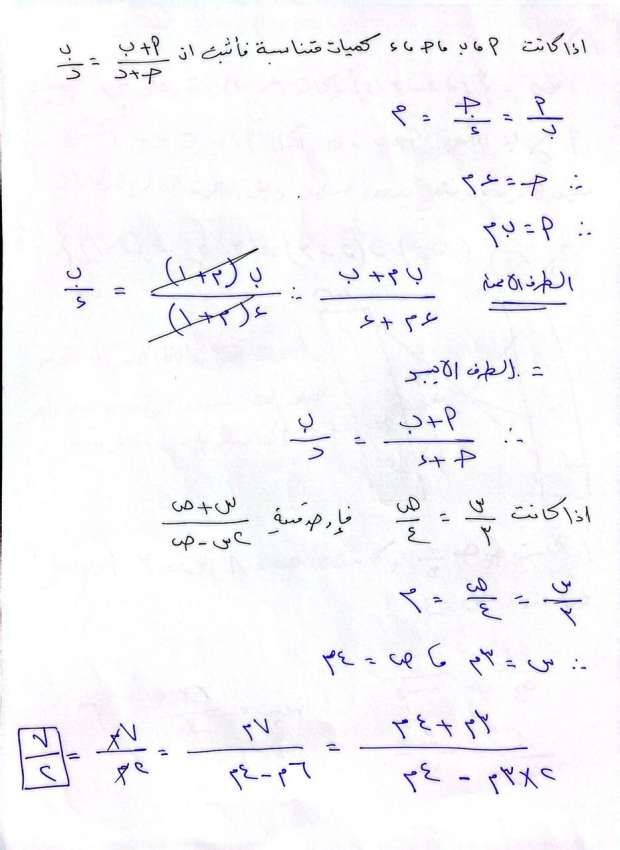 اذا كانت P ، ب ، ج ، ء كميات متناسبة فأثبت ان (P + ب)/(ج + د) = ب/د
P/ب = ج/ء = م
∴ ج = ء م
∴ P = ب م
الطرف الايمن (ب م + ب)/(ء م + ء) ∴ ب(م + ١)/ء(م + ١) = ب/ء
= الطرف الايسر
∴ (P + ب)/(ج + ء) = ب/د
اذا كانت س/٣ = ص/٤ فإوجد قيمة (س + ص)/(٢س - ص)
س/٣ = ص/٤ = م
∴ س = ٣م ، ص = ٤م
(٣م + ٤م)/(٢×٣م - ٤م) = ٧م/(٦م - ٤م) = ٧م/٢م = ٧/٢